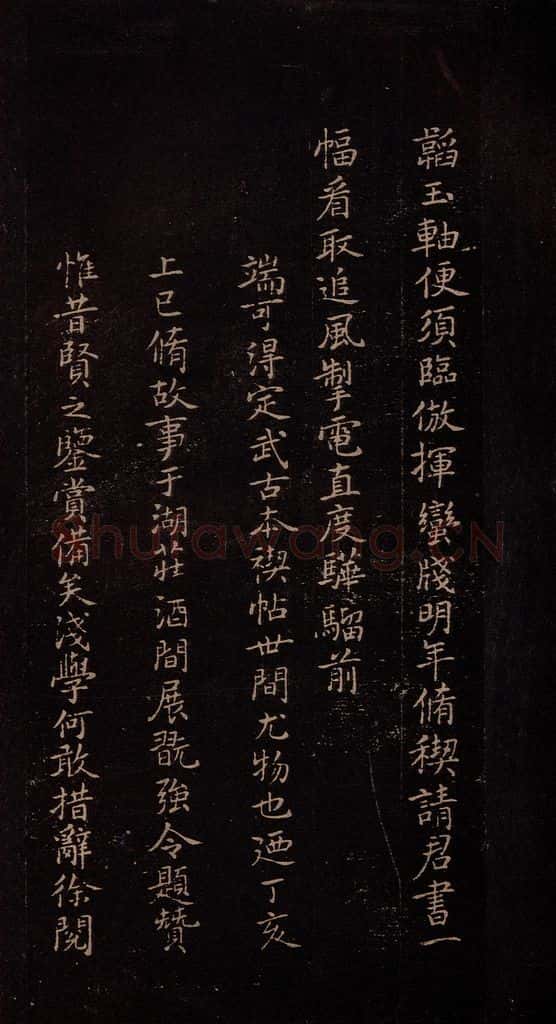 韜玉軸便須臨倣揮蠻牋明年脩稧請君書一
幅看取追風掣電直度驊騮前
端可得定武古本禊帖世間尤物也迺丁亥
上巳脩故事于湖莊酒間展翫強令題贊
惟昔賢之鑒賞備矣淺學何敢措辭徐閱
Shufawang.CN